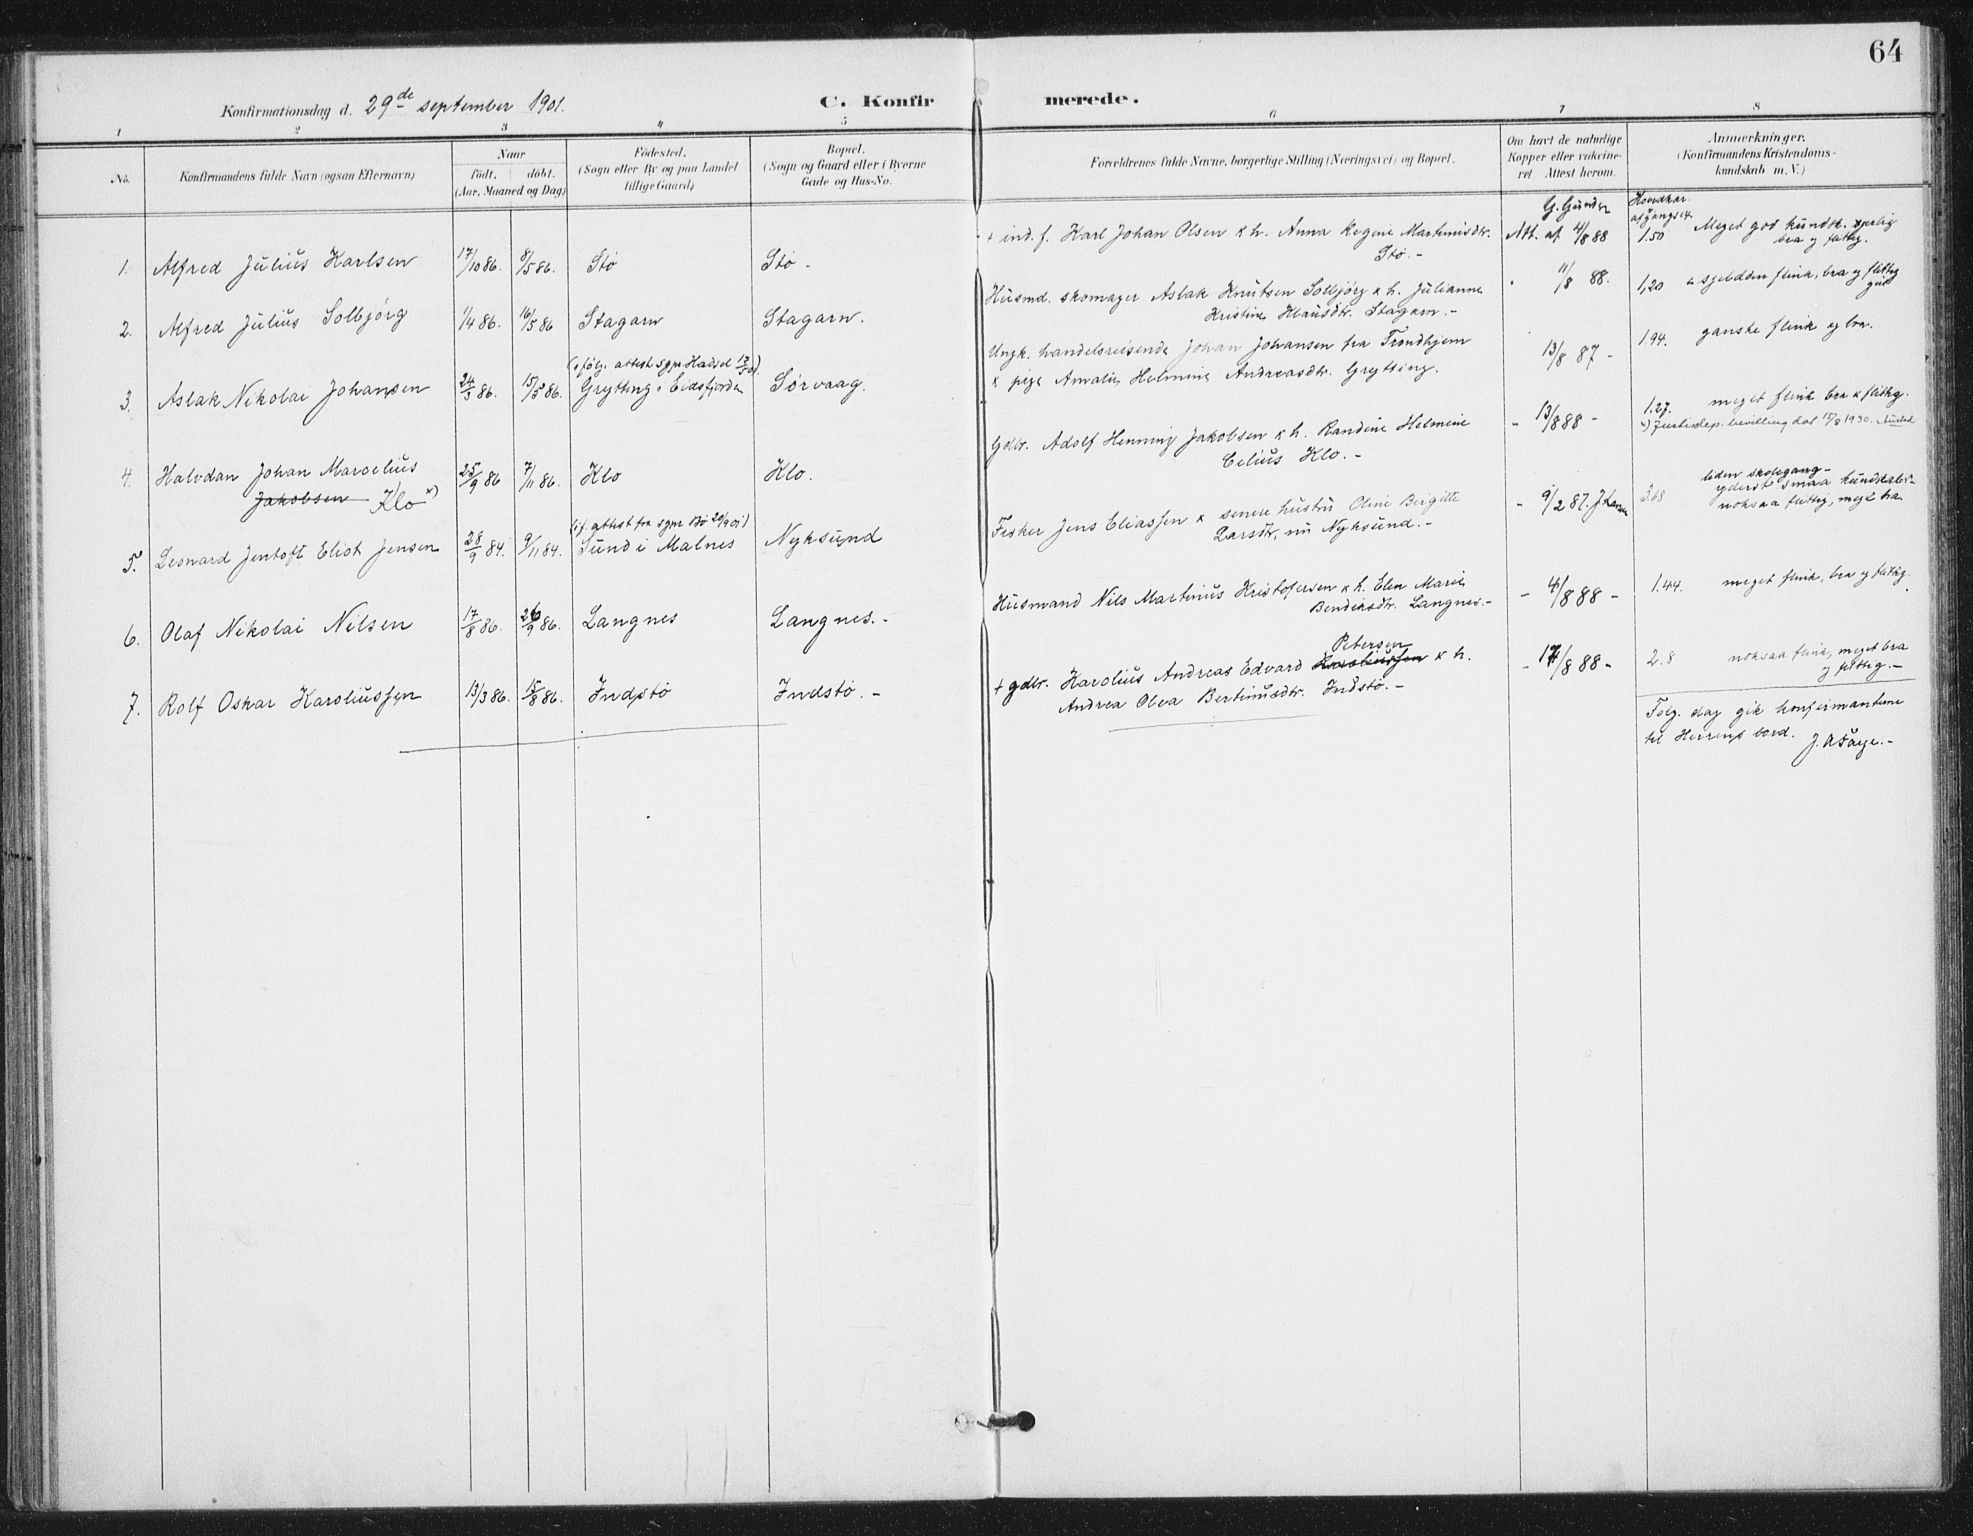 64
Konfirmationsdag d. 29de september 1901.
C. Konfirmerede.
1 2 3 4 5 6 7 8
No.
Konfirmandens fulde Navn (ogsaa Efternavn)
Naar
født. døbt.
(Aar, Maaned og Dag)
Fødested.
(Sogn eller By og paa Landet
tillige Gaard)
Bopæl.
(Sogn og Gaard eller i Byerne
Gade og Hus-No.
Forældrenes fulde Navne, borgerlige Stilling (Næringsvei) og Bopæl.
Om havt de naturlige
Kopper eller vakcine-
ret Attest herom.
Anmærkninger.
(Konfirmandens Kristendoms-
kundskab m. V.)
1. Alfred Julius Karlsen 17/10 86. 8/5 86. Stø Stø -
+ ind. f. Karl Johan Olsen & h. Anna Regine Martinusdtr.
Stø. -
Att. af 4/8 88
1.50 Meget god kundsk.
bra og flittig.
2. Alfred Julius Solbjørg 1/4 86. 16/5 86 Stagarn Stagarn.
Husmd. skomager Aslak Knutsen Solbjørg & h. Julianne
Kristine Klausdtr. Stagarn. -
11/8 88.
1,20 sjelden flink, bra og flittig
gut
3. Aslak Nikolai Johansen 24/3 86. 15/5 86.
(ifølg. attest sgpr Hadsel
Grytting i Eidsfjorden Sørvaag.
Ungk. handelsreisende Johan Johansen fra Trondhjem
& pige Amalie Helmine Andreasdtr. Grytting.
13/8 87 -
1.94. ganske flink og bra.
4. Halvdan Johan Marcelius
Jakobsen Klo x)
25/9 86 7/11 86. Klo Klo.
Gdbr. Adolf Henning Jakobsen & h. Randine Helmine
Celius Klo. -
- 13/8 88 -
1.27. meget flink bra & flittig.
x) Justisdep. bevilling dat 15/8 1930.
5. Leonard Jentoft Eliot Jensen 28/9 84. 9/11 84.
(if. attest fra sgpr Bø 20/9 01)
Sund i Malnes Nyksund
Fisker Jens Eliassen & senere hustru Oline Beigitte
Larsdtr, nu Nyksund. -
- 9/2 87.
3.68
liden skolegang -
yderst smaa kundskaber -
noksaa flittig, meget bra
6. Olaf Nikolai Nilsen 17/8 86. 26/9 86. Langnes Langnes. -
Husmand Nils Martinus Kristofersen & h. Elen Marie
Bendiksdtr. Langnes. -
- 4/8 88 -
1.44. meget flink, bra og flittig.
7. Rolf Oskar Karoliussen 13/3 86. 15/8 86. Indstø Indstø. -
Petersen
+ gdbr. Karolius Andreas Edvard Karoliussen & h.
Andrea Olea Bertinusdtr. Indstø. -
- 17/8 88 -
2.8 noksaa flink, meget bra
og flittig. -
Følg. dag gik konfirmanterne
til Herrens bord.